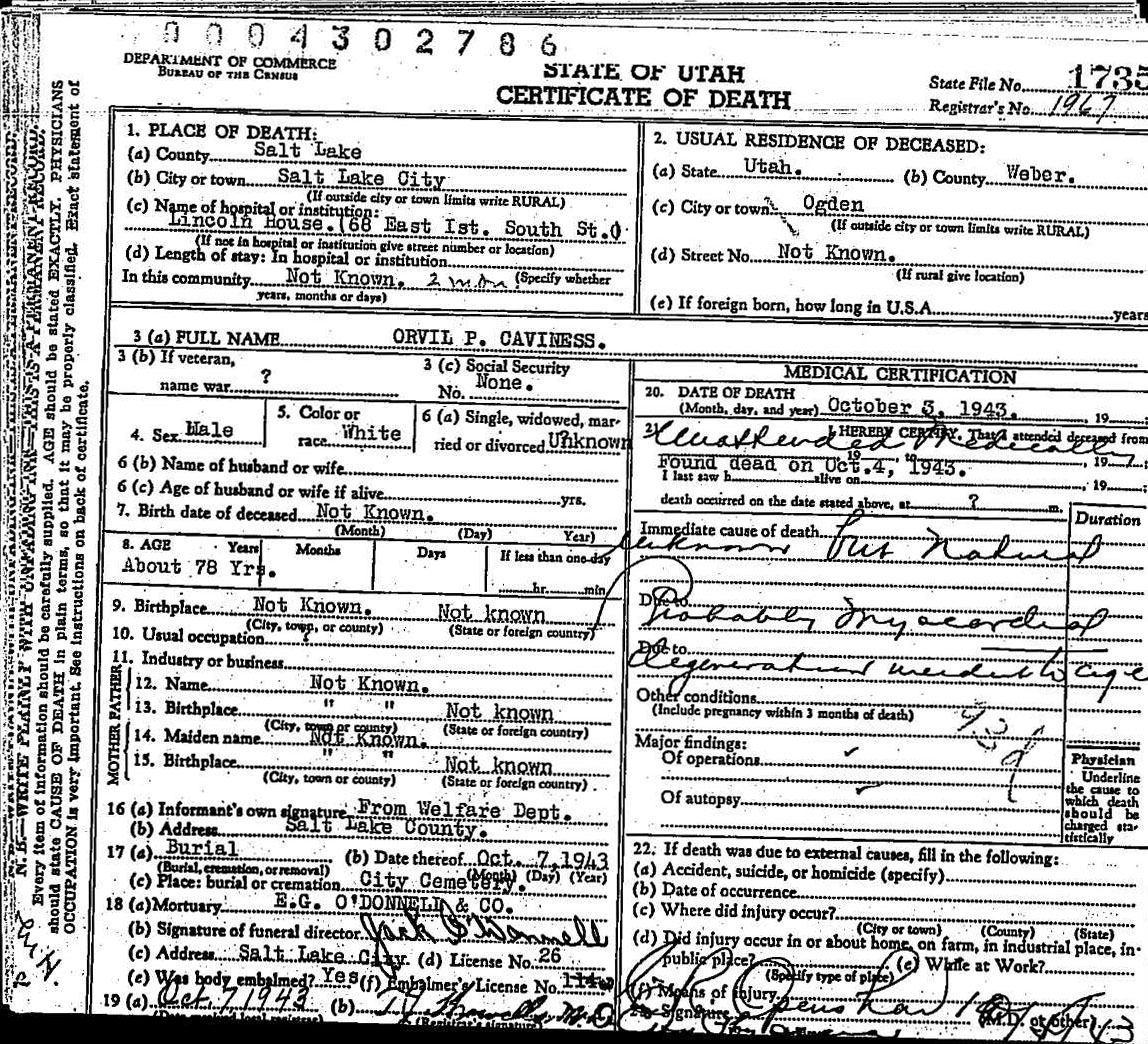 0004302786
DEPARTMENT OF COMMERCE
BUREAU OF THE CENSUS
STATE OF UTAH
CERTIFICATE OF DEATH
State File No. 1735
Registrar's No. 1967
N. B.—WRITE PLAINLY WITH UNFADING INK—THIS IS A PERMANENT RECORD.
Every item of information should be carefully supplied. AGE should be stated EXACTLY. PHYSICIANS
should state CAUSE OF DEATH in plain terms, so that it may be properly classified. Exact statement of
OCCUPATION is very important. See instructions on back of certificate.
1. PLACE OF DEATH:
(a) County Salt Lake
(b) City or town Salt Lake City
(If outside city or town limits write RURAL)
(c) Name of hospital or institution:
Lincoln House. (68 East Ist. South St.()
(If not in hospital or institution give street number or location)
(d) Length of stay: In hospital or institution
In this community Not Known. 2 mon (Specify whether
years, months or days)
2. USUAL RESIDENCE OF DECEASED:
(a) State Utah. (b) County Weber.
(c) City or town Ogden
(If outside city or town limits write RURAL)
(d) Street No. Not Known.
(If rural give location)
(e) If foreign born, how long in U.S.A. years
3 (a) FULL NAME ORVIL P. CAVINESS.
3 (b) If veteran,
name war ?
3 (c) Social Security
No. None.
4. Sex Male
5. Color or
race White
6 (a) Single, widowed, mar-
ried or divorced Unknown
6 (b) Name of husband or wife
6 (c) Age of husband or wife if alive yrs.
7. Birth date of deceased Not Known.
(Month) (Day) Year)
8. AGE Years Months Days If less than one day
About 78 Yrs. hr. min
9. Birthplace Not Known. Not known
(City, town, or county) (State or foreign country)
10. Usual occupation ?
11. Industry or business
FATHER
12. Name Not Known.
13. Birthplace " " Not known
(City, town or county) (State or foreign country)
MOTHER
14. Maiden name Not Known.
15. Birthplace " " Not known
(City, town or county) (State or foreign country)
16 (a) Informant's own signature From Welfare Dept.
(b) Address Salt Lake County.
17 (a) Burial (b) Date thereof Oct. 7, 1943
(Burial, cremation, or removal) (Month) (Day) (Year)
(c) Place: burial or cremation City Cemetery.
18 (a) Mortuary E.G. O'DONNELL & CO.
(b) Signature of funeral director Jack O'Donnell
(c) Address Salt Lake City. (d) License No. 26
(e) Was body embalmed? Yes (f) Embalmer's License No.
19 (a) Oct. 7 1943 (b) M.D.
MEDICAL CERTIFICATION
20. DATE OF DEATH
(Month, day, and year) October 3, 1943. 19
21. I HEREBY CERTIFY, That I attended deceased from
Unattended Medically
19 , to , 19
Found dead on Oct.4, 1943.
I last saw h alive on , 19
death occurred on the date stated above, at ? m.
Duration
Immediate cause of death
Unknown but Natural
Due to
Probably Myocardial
Due to
degeneration incident to age
Other conditions
(Include pregnancy within 3 months of death)
93d
Major findings:
Of operations
Of autopsy
Physician
Underline
the cause to
which death
should be
charged sta-
tistically
22. If death was due to external causes, fill in the following:
(a) Accident, suicide, or homicide (specify)
(b) Date of occurrence
(c) Where did injury occur?
(City or town) (County) (State)
(d) Did injury occur in or about home, on farm, in industrial place, in
public place? (e) While at Work?
(Specify type of place)
(f) Means of injury
Signature (M.D. or other)